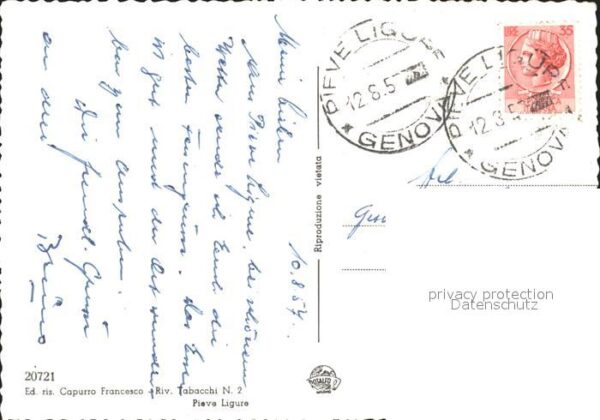 10.8.57.
Meine Lieben
Aus Pieve Ligure, bei schönem
Wetter sende ich Euch die
besten Feriengrüsse. Das Essen
ist gut und der Ort wunder-
bar zum
Mit freundl. Grüssen
an alle
Bruno
PIEVE LIGURE
12.8.5
GENOVA
PIEVE LIGURE
12.8.5
GENOVA
LIRE 35
Riproduzione vietata
privacy protection
Datenschutz
20721
Ed. ris. Capurro Francesco - Riv. Tabacchi N. 2
Pieve Ligure